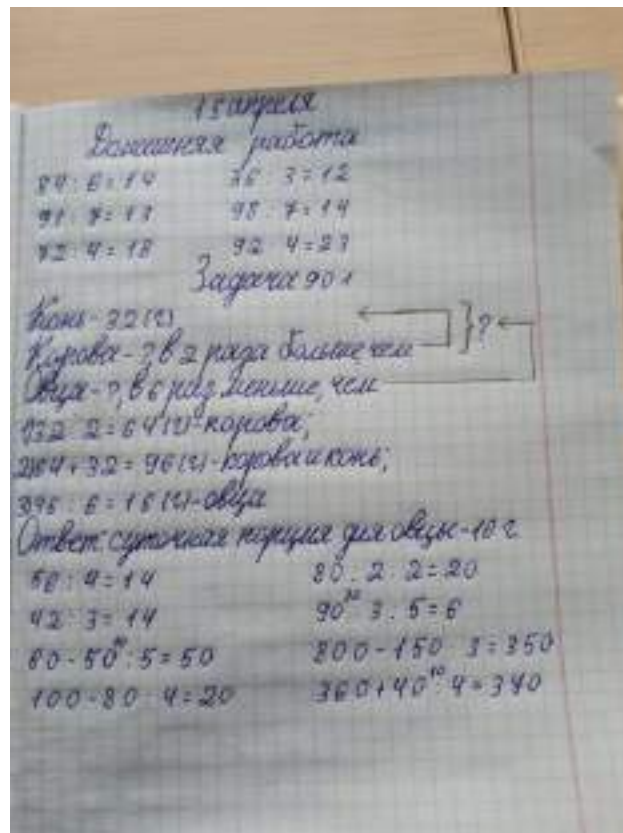 апреля
Домашняя работа
84 : 6 = 14 36 : 3 = 12
91 : 7 = 13 98 : 7 = 14
72 : 4 = 18 92 : 4 = 23
Задача 901
Конь - 32 (г)
Корова - ?, в 2 раза больше, чем } ?
Овца - ?, в 6 раз меньше, чем
1) 32 · 2 = 64 (г) - корова;
2) 64 + 32 = 96 (г) - корова и конь;
3) 96 : 6 = 16 (г) - овца
Ответ: суточная порция для овцы - г
: 4 = 14 80 : 2 : 2 = 20
42 : 3 = 14 90 : 3 : 5 = 6
- 50 : 5 = 50 800 - 150 · 3 = 350
100 - 80 : 4 = 20 360 + 40 : 4 = 370